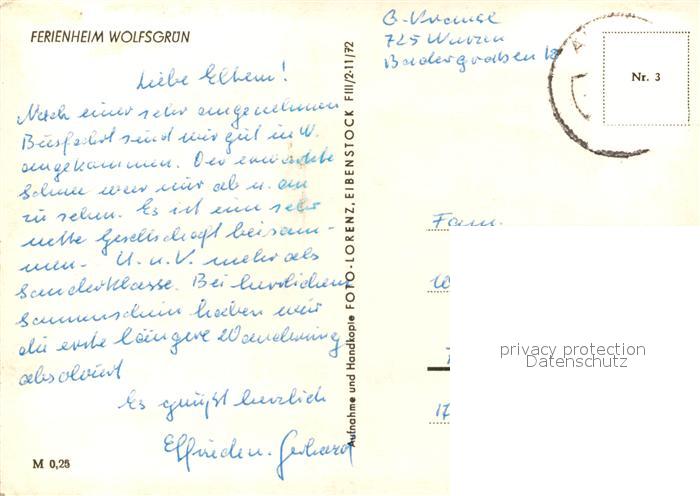 FERIENHEIM WOLFSGRÜN
Liebe Eltern!
Nach einer sehr angenehmen
Busfahrt sind wir gut in W.
angekommen. Der erwartete
Schnee war nur ab u. an
zu sehen. Es ist eine sehr
nette Gesellschaft beisam-
men. U. u. V. mehr als
Sonderklasse. Bei herrlichem
Sonnenschein haben wir
die erste längere Wanderung
absolviert
Es grüßt herzlich
Elfriede u. Gerhard
M 0,25
Aufnahme und Handkopie FOTO-LORENZ, EIBENSTOCK F III/2-11/72
G. Krause
725 Wurzen
Badergraben 18
Nr. 3
Fam.
10
7
17
privacy protection
Datenschutz